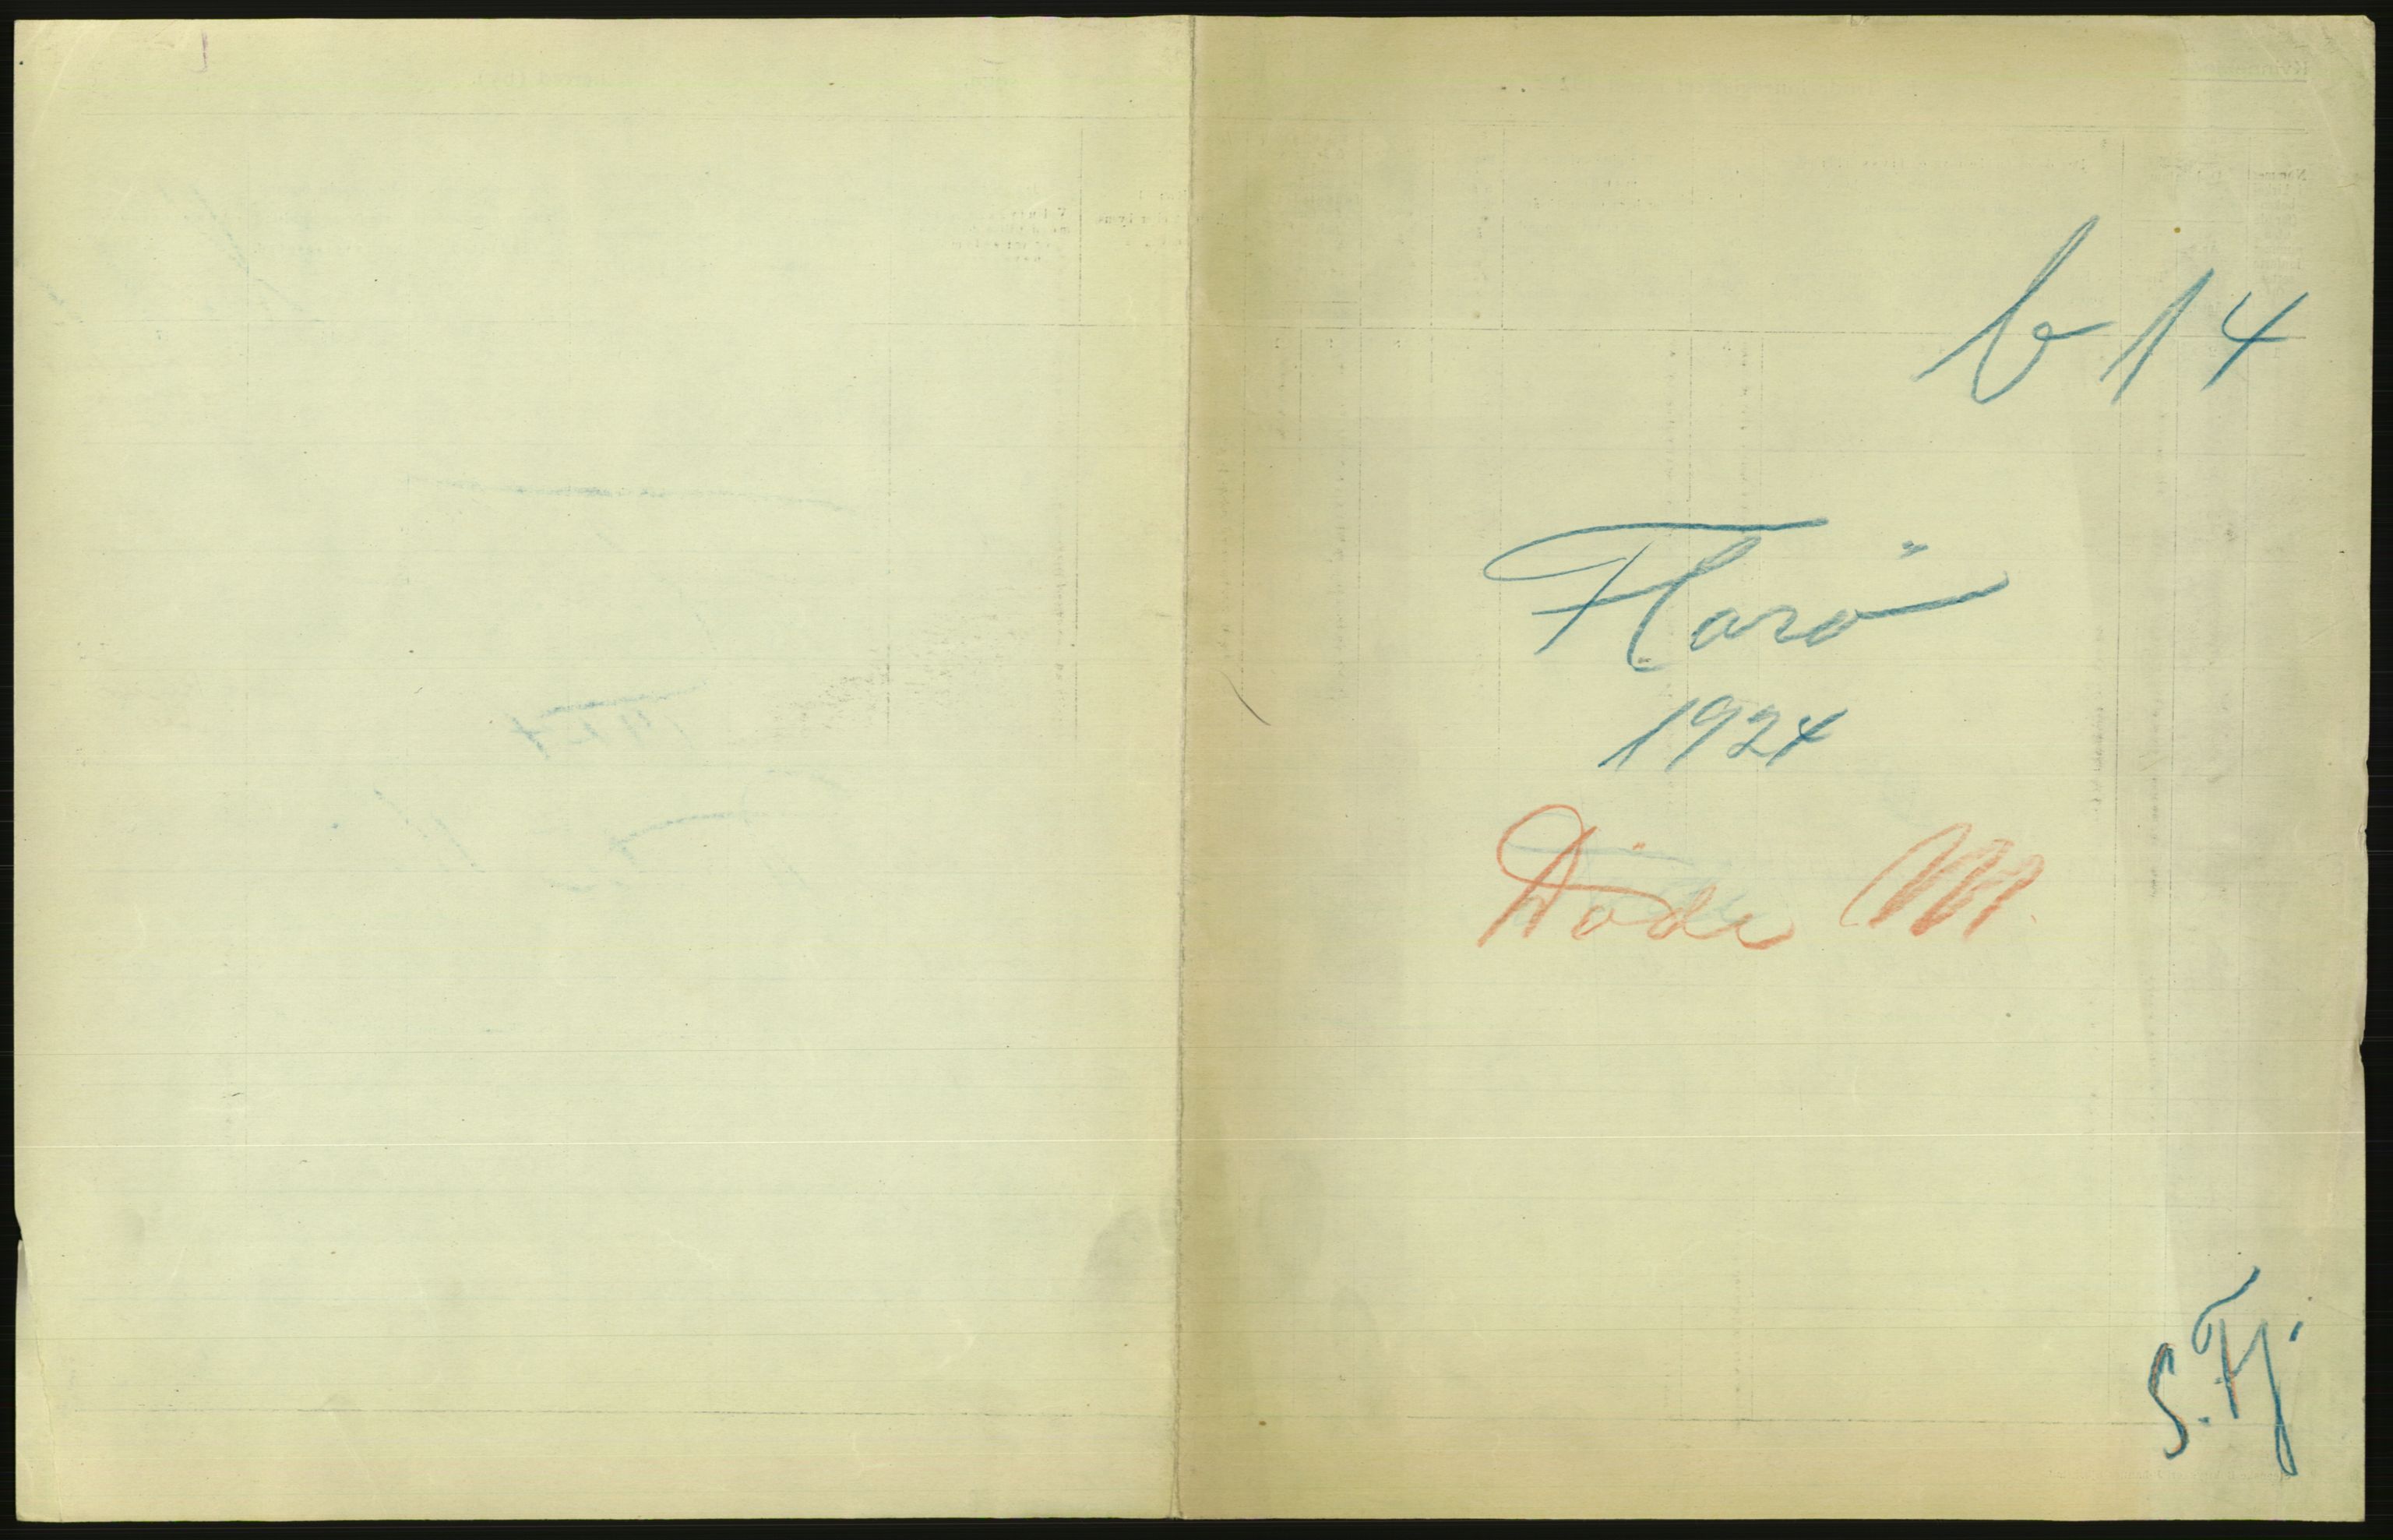 b 14
Florö
1924
Döde M.
S. Fj.